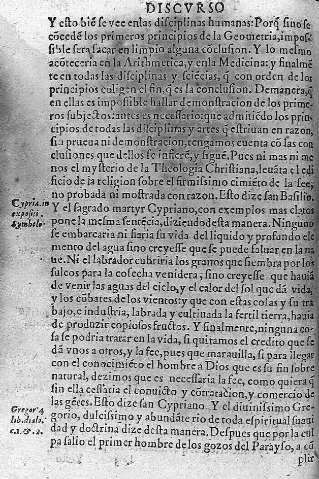 DISCVRSO
Y esto biẽ se vee enlas disciplinas humanas: Porq̃ si no se
cõcedẽ los primeros principios de la Geometria, impos-
sible sera sacar en limpio alguna cõclusion. Y lo mesmo
acõteceria en la Arithmetica, y en la Medicina: y finalmẽ
te en todas las disciplinas y sciẽcias, q̃ con orden de los
principios coligen el fin, q̃ es la conclusion. De manera, q̃
en ellas es impossible hallar demonstracion de los prime-
ros subjectos: antes es necessario, que admitiẽdo los prin-
cipios de todas las disciplinas y artes q̃ estriuan en razon,
sin prueua ni demonstracion, tengamos cuenta cõ las con
clusiones que dellos se infierẽ, y sigue. Pues ni mas ni me
nos el mysterio de la Theologia Christiana, leuãta el edi
ficio de la religion sobre el firmissimo cimiẽto de la fee,
no probada ni mostrada con razon. Esto dize san Basilio.
Y el sagrado martyr Cypriano, con exemplos mas claros
pone la mesma sentẽcia, diziendo desta manera. Ninguno
se embarcaria ni fiaria su vida del liquido y profundo ele
mento del agua sino creyesse que se puede saluar en la na
ue. Ni el labrador cubriria los granos que siembra por los
sulcos para la cosecha venidera, sino creyesse que hauiã
de venir las aguas del cielo, y el calor del sol que dã vida,
y los cõbates de los vientos: y que con estas cosas y su tra
bajo, e industria, labrada y cultiuada la fertil tierra, hauia
de produzir copiosos fructos. Y finalmente, ninguna co-
sa se podria tratar en la vida, si quitamos el credito que se
dã vnos a otros, y la fee, pues que marauilla, si para llegar
con el conocimiẽto el hombre a Dios que es su fin sobre
natural, dezimos que es necessaria la fee, como quiera q̃
sin ella cessaria el conuicto y cõtratacion, y comercio de
las gẽtes. Esto dize san Cypriano. Y el diuinissimo Gre-
gorio, dulcissimo y abundãte rio de toda espiritual suaui
dad y doctrina dize desta manera. Despues que por la cul
pa salio el primer hombre de los gozos del Parayso, a cũ
plir
Cypria. in
exposit.
Symbolo.
Gregor. 4.
lib. dialo.
c. 1. & 2.